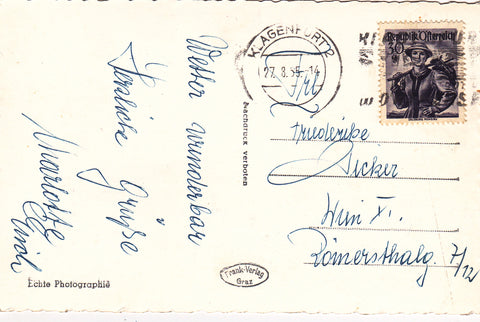 Wetter wunderbar
Herzliche Grüße
KLAGENFURT 2
22.8.55.-14
Republik Österreich
30
Frl
Friederike
Sicker
Wien XI.
Römersthalg. 7/12
Nachdruck verboten
Frank-Verlag
Graz
Echte Photographie